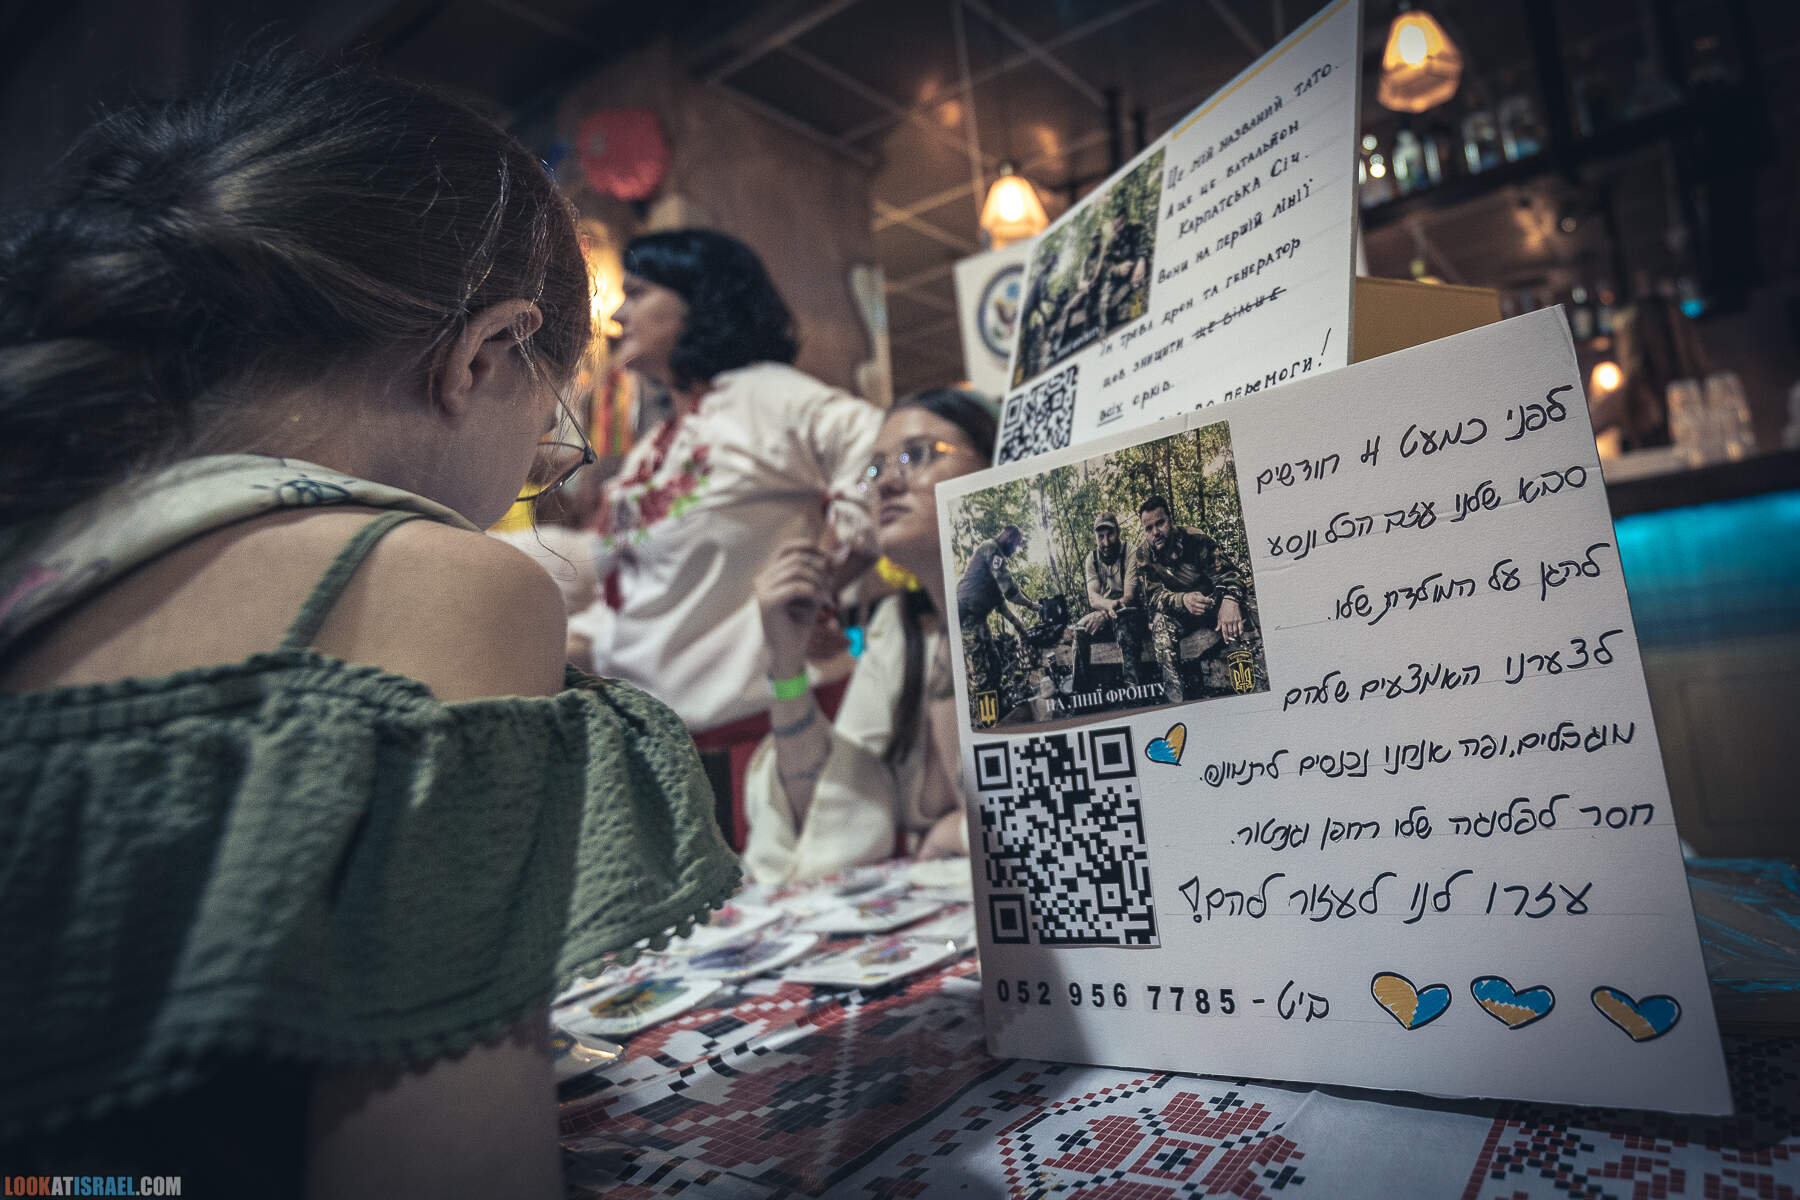 Це мій названий тато.
А це це батальйон
Карпатська Січ.
Вони на першій лінії
Їм треба дрон та генератор
щоб знищити ще більше
всіх орків.
до перемоги!
לפני כמעט 4 חודשים
סבא שלנו עזב הכל ונסע
להגן על המולדת שלו.
לצערנו האמצעים שלהם
מוגבלים, ופה אנחנו נכנסים לתמונה.
חסר לפלוגה שלו רחפן וגנרטור.
עזרו לנו לעזור להם!
НА ЛІНІЇ ФРОНТУ
052 956 7785 - ביט
LOOKATISRAEL.COM